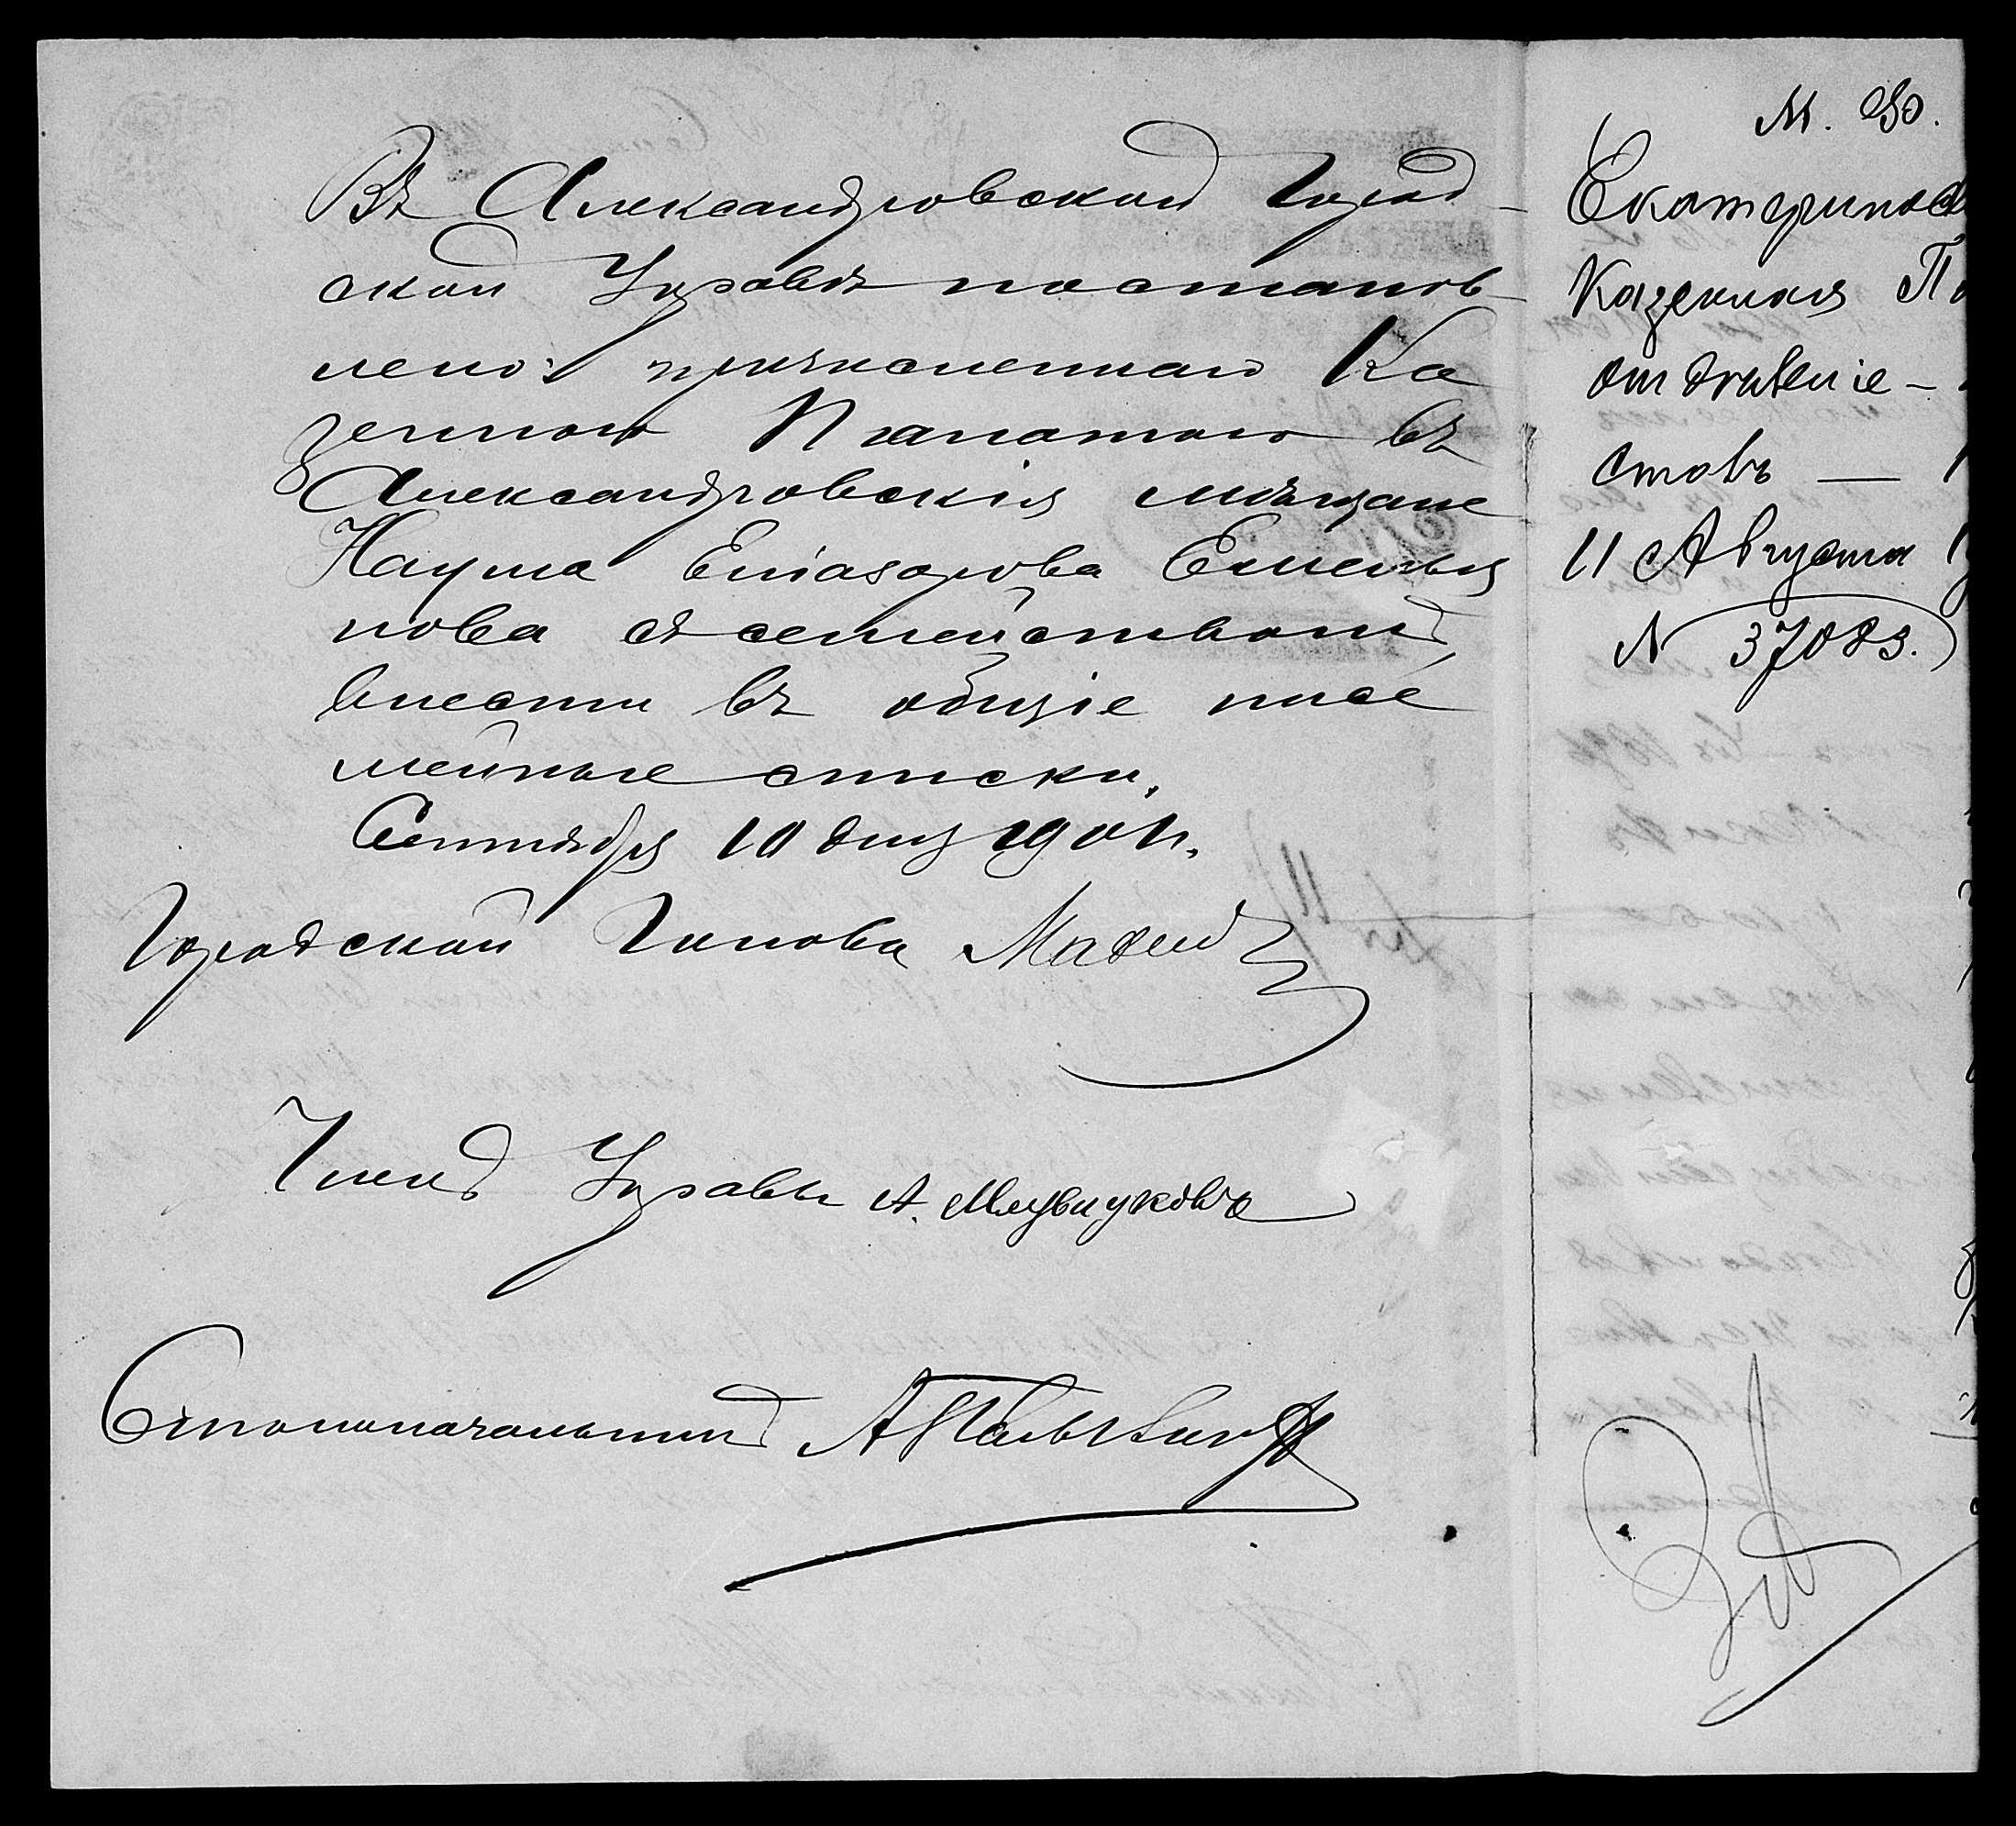 Въ Александровской Город-
ской Управѣ постанов-
лено: причисленнаго Ка
зенною Палатою въ
Александровскія мѣщане
Наума Еліазарова Емелья
нова съ семействомъ,
внести въ общіе посе
мейные списки.
Сентября 10 дня 1901 г.
Городской Голова
Членъ Управы А.
Столоначальникъ
М. В.
Екатеринос
Казенная Па
отдѣленіе –
столъ —
11 Августа 1
N 37083.